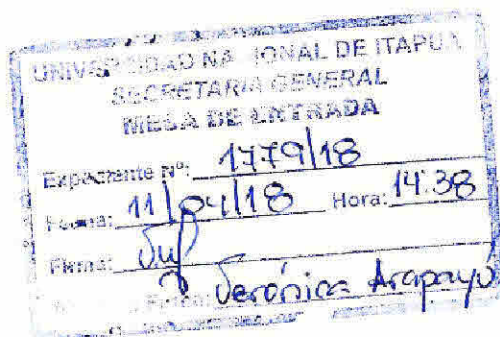 UNIVERSIDAD NACIONAL DE ITAPUA
SECRETARIA GENERAL
MESA DE ENTRADA
Expediente Nº: 1779/18
Fecha: 11/04/18 Hora: 14:38
Firma:
Verónica